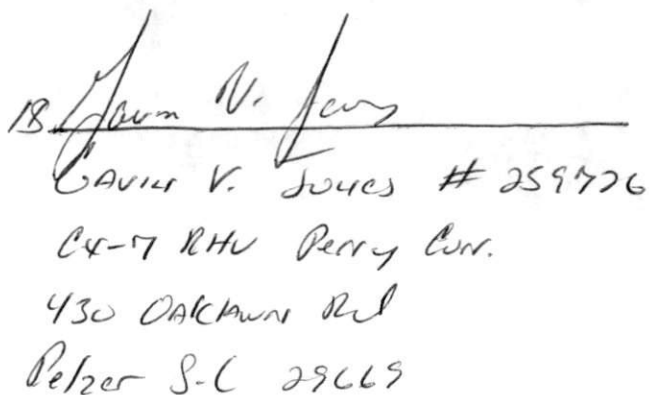 /S Gavin V. Jones
Gavin V. Jones # 259776
C4-7 RHU Perry Corr.
430 Oaklawn Rd
Pelzer S-C 29669